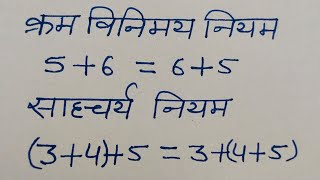 क्रम विनिमय नियम
5+6 = 6+5
साहचर्य नियम
(3+4)+5 = 3+(4+5)